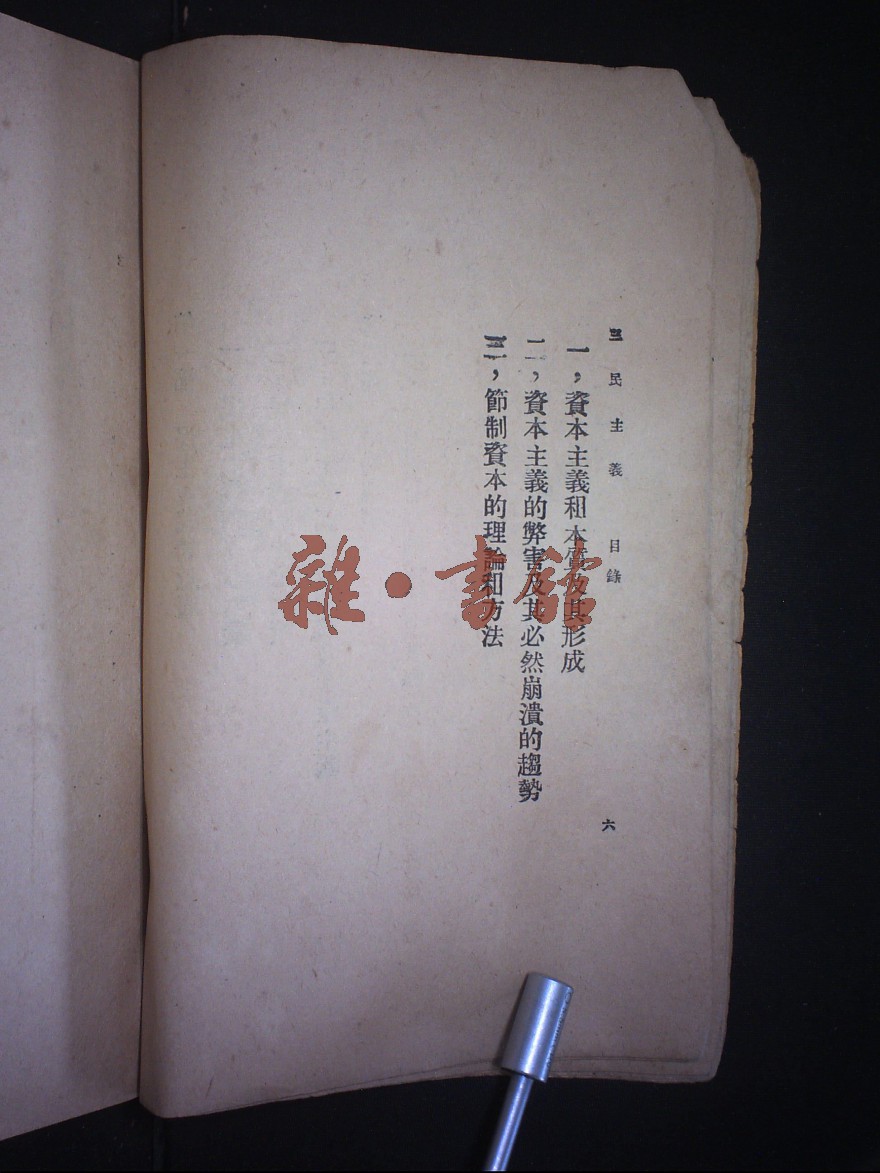 三民主義 目錄
一，資本主義租本質及其形成
二，資本主義的弊害及其必然崩潰的趨勢
三，節制資本的理論和方法
六
雜·書館